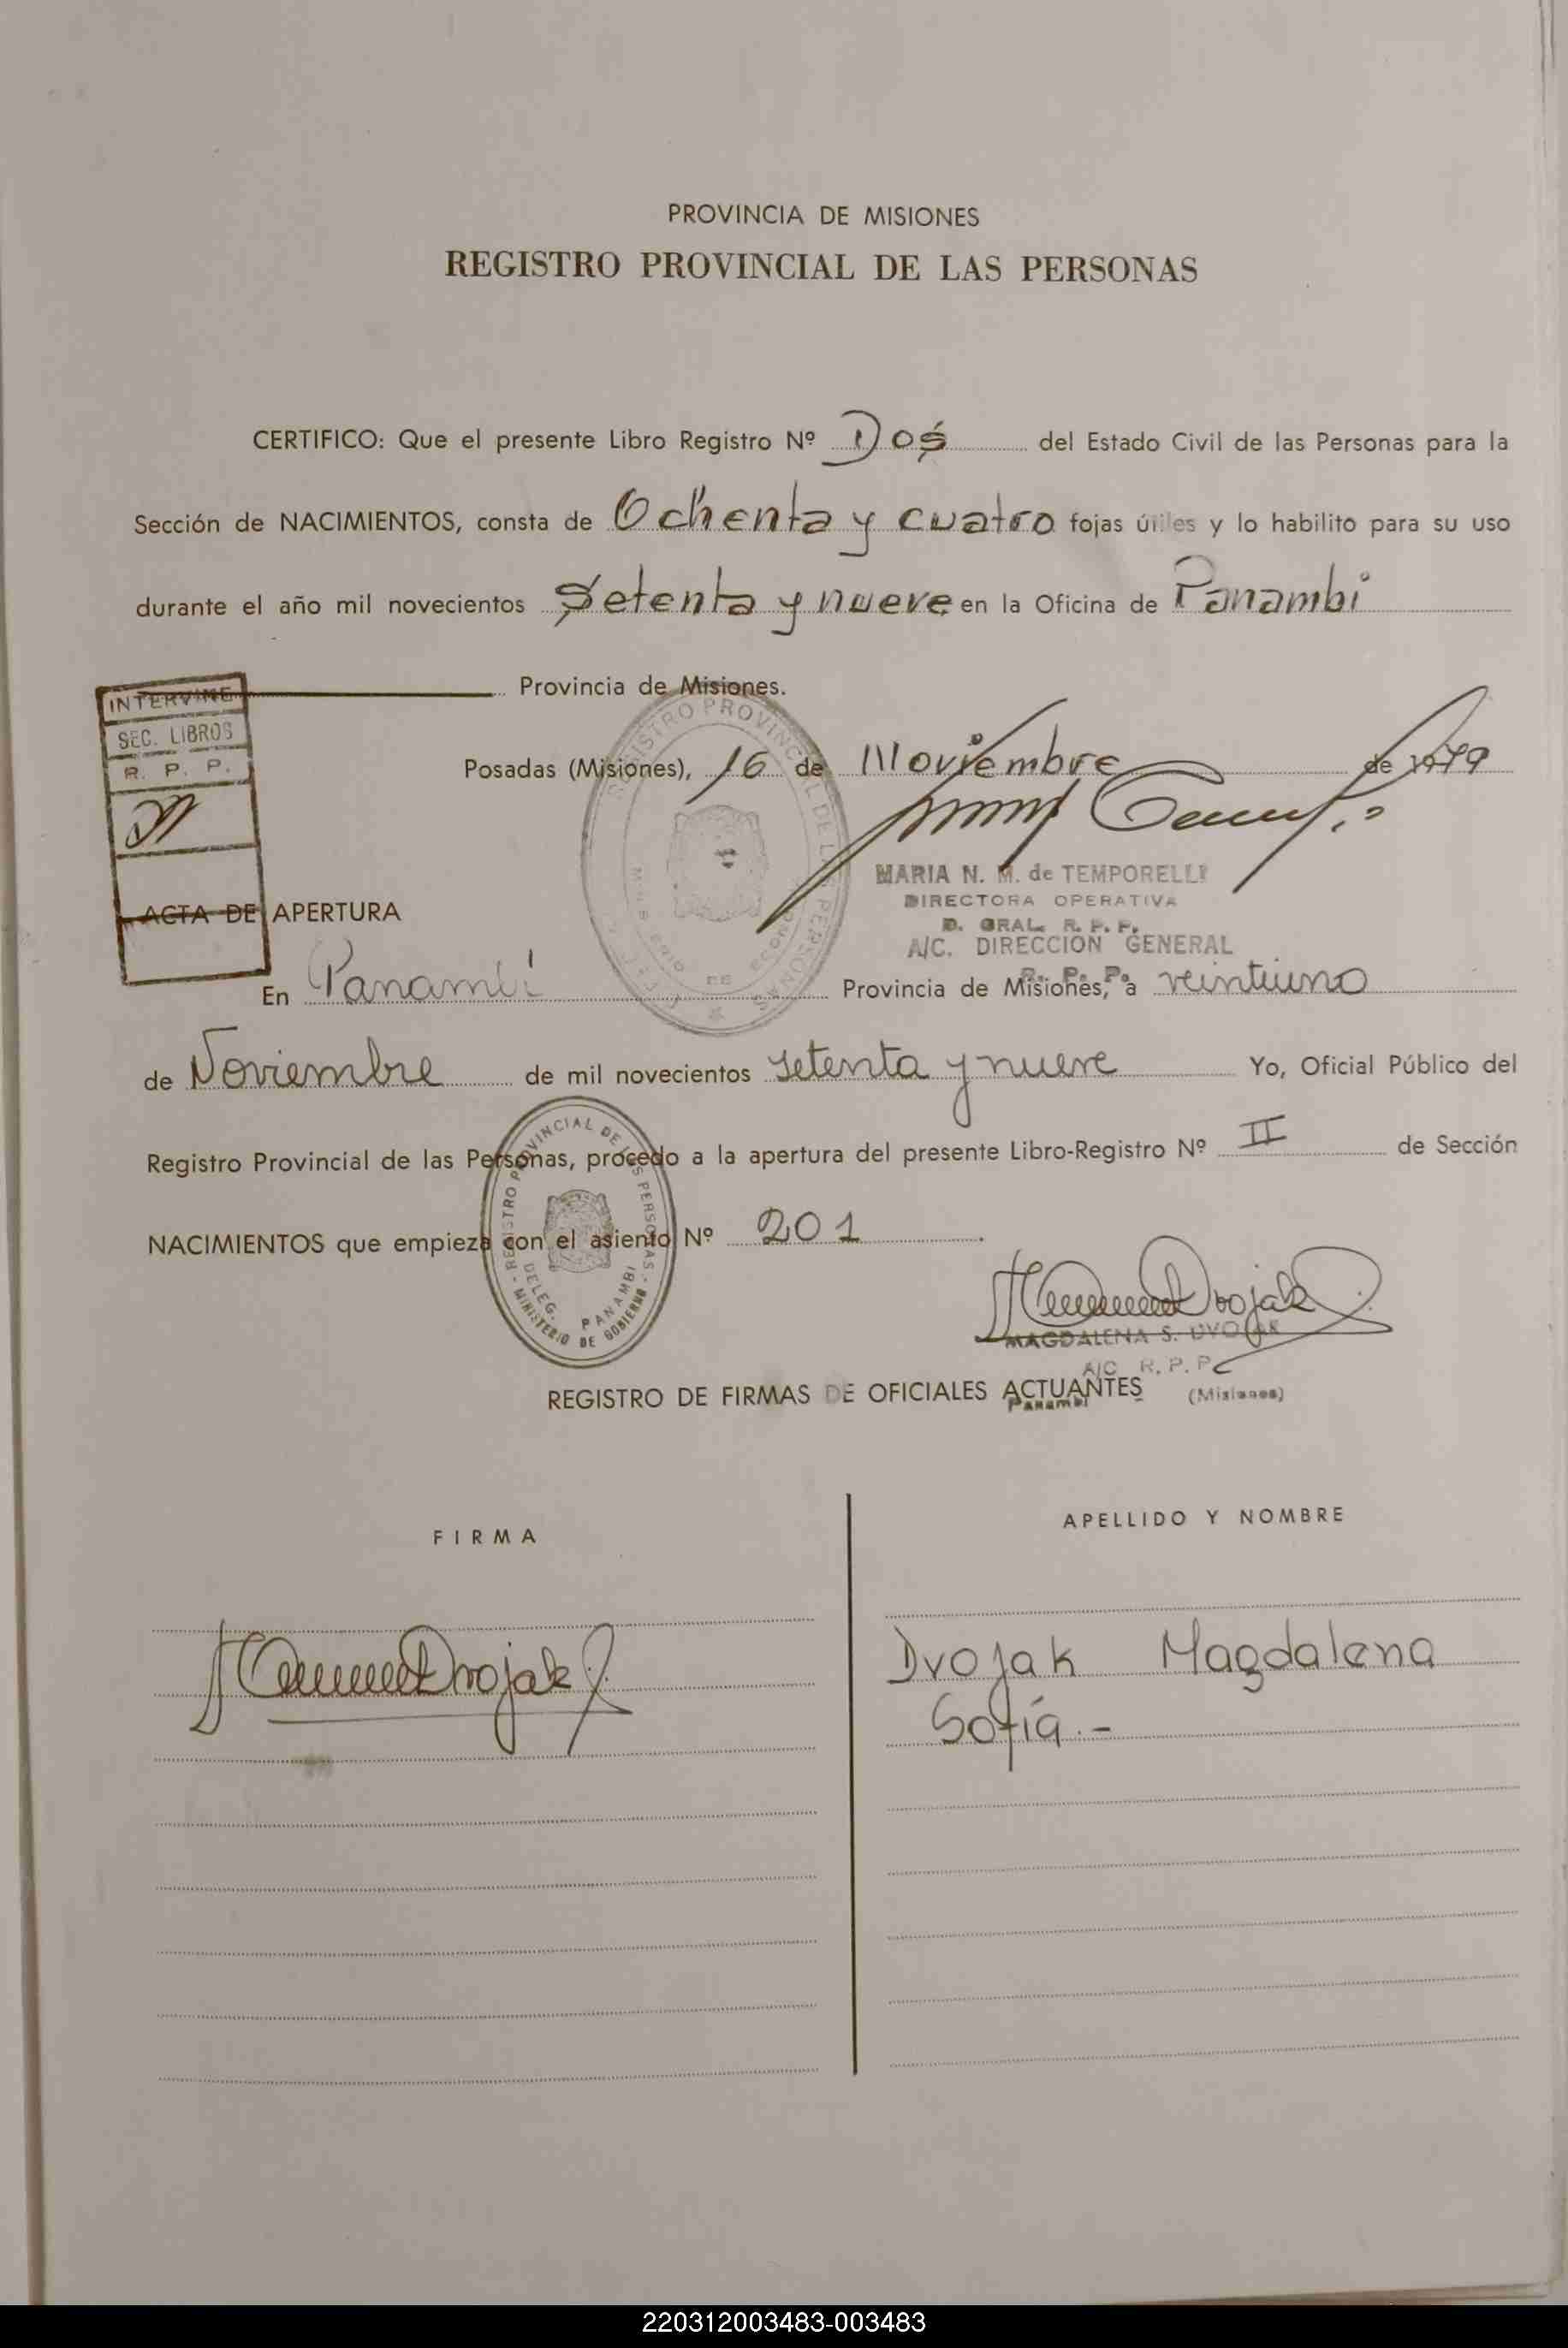 PROVINCIA DE MISIONES
REGISTRO PROVINCIAL DE LAS PERSONAS
CERTIFICO: Que el presente Libro Registro Nº Dos del Estado Civil de las Personas para la
Sección de NACIMIENTOS, consta de Ochenta y cuatro fojas útiles y lo habilito para su uso
durante el año mil novecientos Setenta y nueve en la Oficina de Panambi
Provincia de Misiones.
INTERVINE
SEC. LIBROS
R. P. P.
Posadas (Misiones), 16 de Noviembre de 1979
REGISTRO PROVINCIAL DE LAS PERSONAS
MARIA N. M. de TEMPORELLI
DIRECTORA OPERATIVA
D. GRAL. R. P. P.
A/C. DIRECCION GENERAL
R. P. P.
ACTA DE APERTURA
En Panambí Provincia de Misiones, a veintiuno
de Noviembre de mil novecientos setenta y nueve Yo, Oficial Público del
Registro Provincial de las Personas, procedo a la apertura del presente Libro-Registro Nº II de Sección
NACIMIENTOS que empieza con el asiento Nº 201
REGISTRO PROVINCIAL DE LAS PERSONAS
DELEG. PANAMBI
MINISTERIO DE GOBIERNO
Dvojak
MAGDALENA S. DVOJAK
A/C R. P. P.
Panambi (Misiones)
REGISTRO DE FIRMAS DE OFICIALES ACTUANTES
FIRMA
APELLIDO Y NOMBRE
Dvojak
Dvojak Magdalena
Sofía.-
220312003483-003483